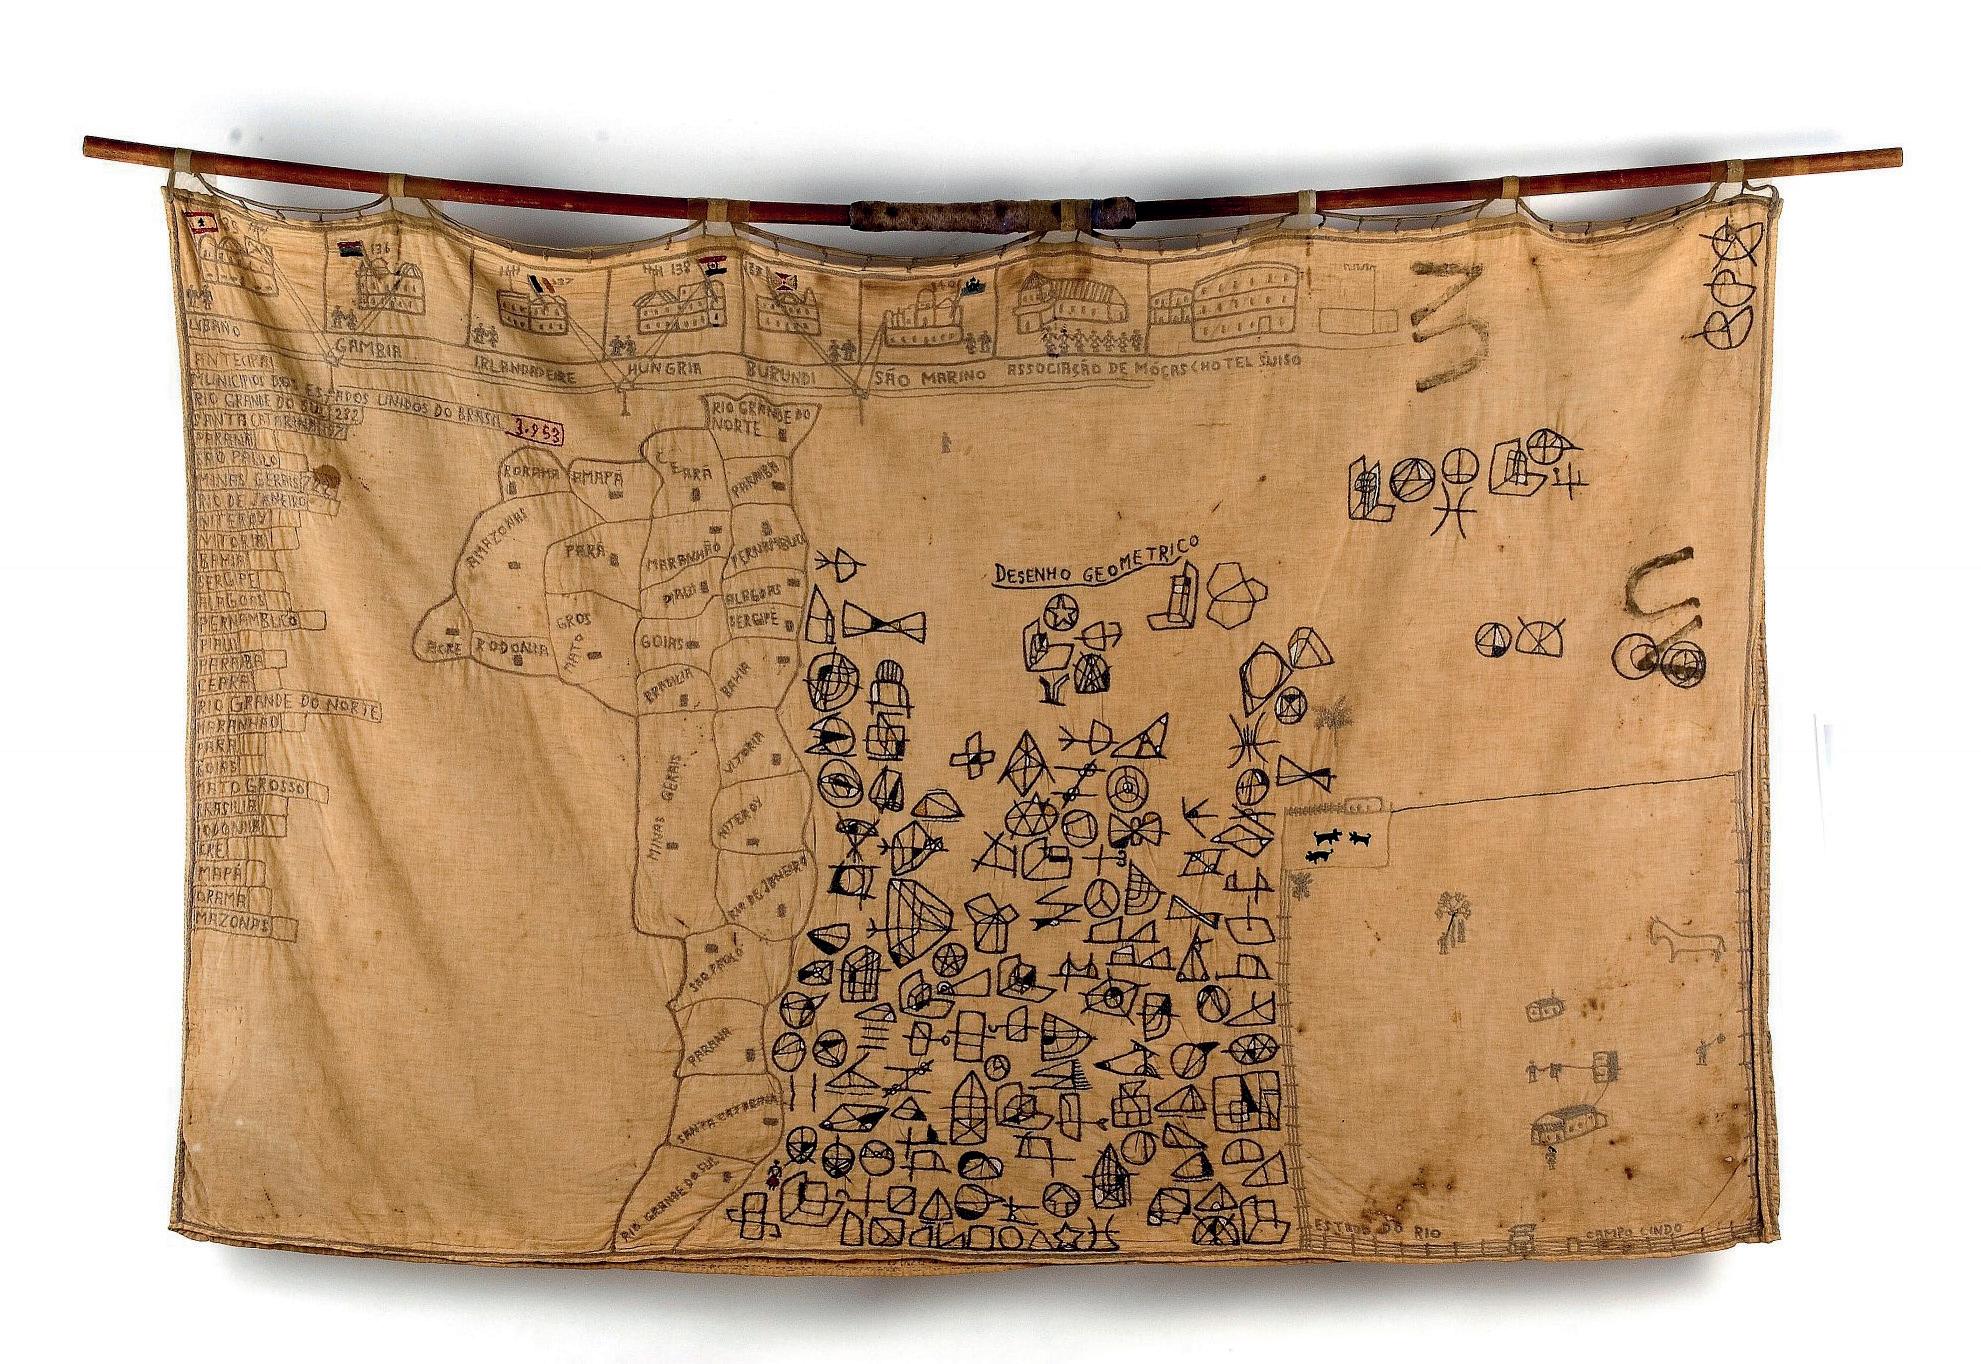 136
138
LIBANO
GAMBIA
IRLANDADEIRE
HUNGRIA
BURUNDI
SÃO MARINO
ASSOCIAÇÃO DE MOÇAS
HOTEL SUISO
MUNICIPIOS DOS ESTADOS UNIDOS DO BRASIL 3.953
RIO GRANDE DO SUL 232
SANTA CATARINA
PARANA
SÃO PAULO
MINAS GERAIS
RIO DE JANEIRO
NITEROY
VITORIA
BAHIA
SERGIPE
ALAGOAS
PERNAMBUCO
PIAUI
PARAIBA
CEARA
RIO GRANDE DO NORTE
MARANHÃO
PARA
GOIAS
MATO GROSSO
BRASILIA
RODONIA
ACRE
AMAPÁ
RORAMA
AMAZONAS
RIO GRANDE DO
NORTE
RORAMA
AMAPÁ
CEARÁ
PARAIBA
AMAZONAS
PARÁ
MARANHÃO
PERNAMBUCO
PIAUI
ALAGOAS
GROS
MATO
GOIAS
SERGIPE
ACRE
RODONIA
BRASILIA
BAHIA
MINAS GERAIS
VITORIA
NITEROY
RIO DE JANEIRO
SÃO PAULO
PARANA
SANTA CATARINA
RIO GRANDE DO SUL
DESENHO GEOMETRICO
ESTADO DO RIO
CAMPO LINDO